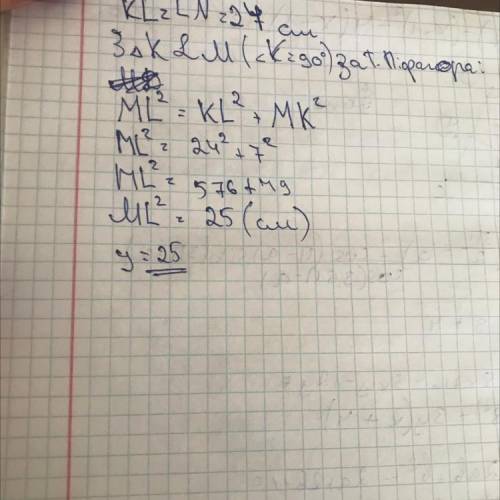 KL = LN = 24 см
З Δ K L M (∠K = 90°) за т. Піфагора:
ML² = KL² + MK²
ML² = 24² + 7²
ML² = 576 + 49
ML² = 25 (см)
y = 25